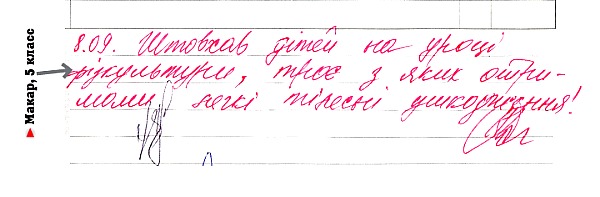 Макар, 5 класс
8.09. Штовхав дітей на уроці
фізкультури, троє з яких отри-
мали легкі тілесні ушкодження!